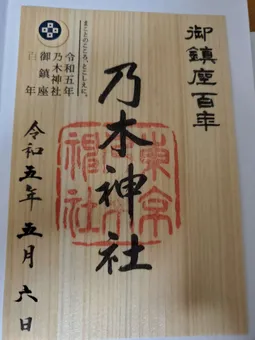 御鎮座百年
まことのこころ、とこしえに。
令和五年
乃木神社
御鎮座
百年
乃木神社
東京
乃木
神社
令和五年五月六日